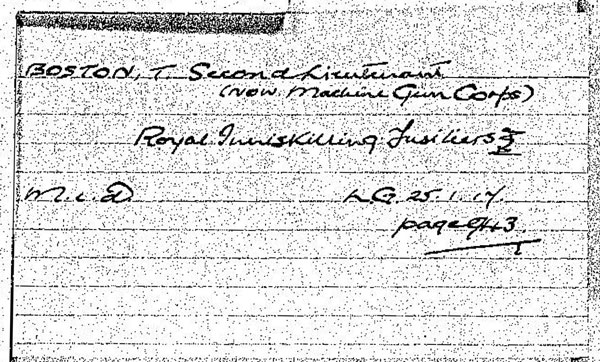 BOSTON, T. Second Lieutenant
(now Machine Gun Corps)
Royal Inniskilling Fusiliers
M.i.D. L.G. 25.1.17.
page 943